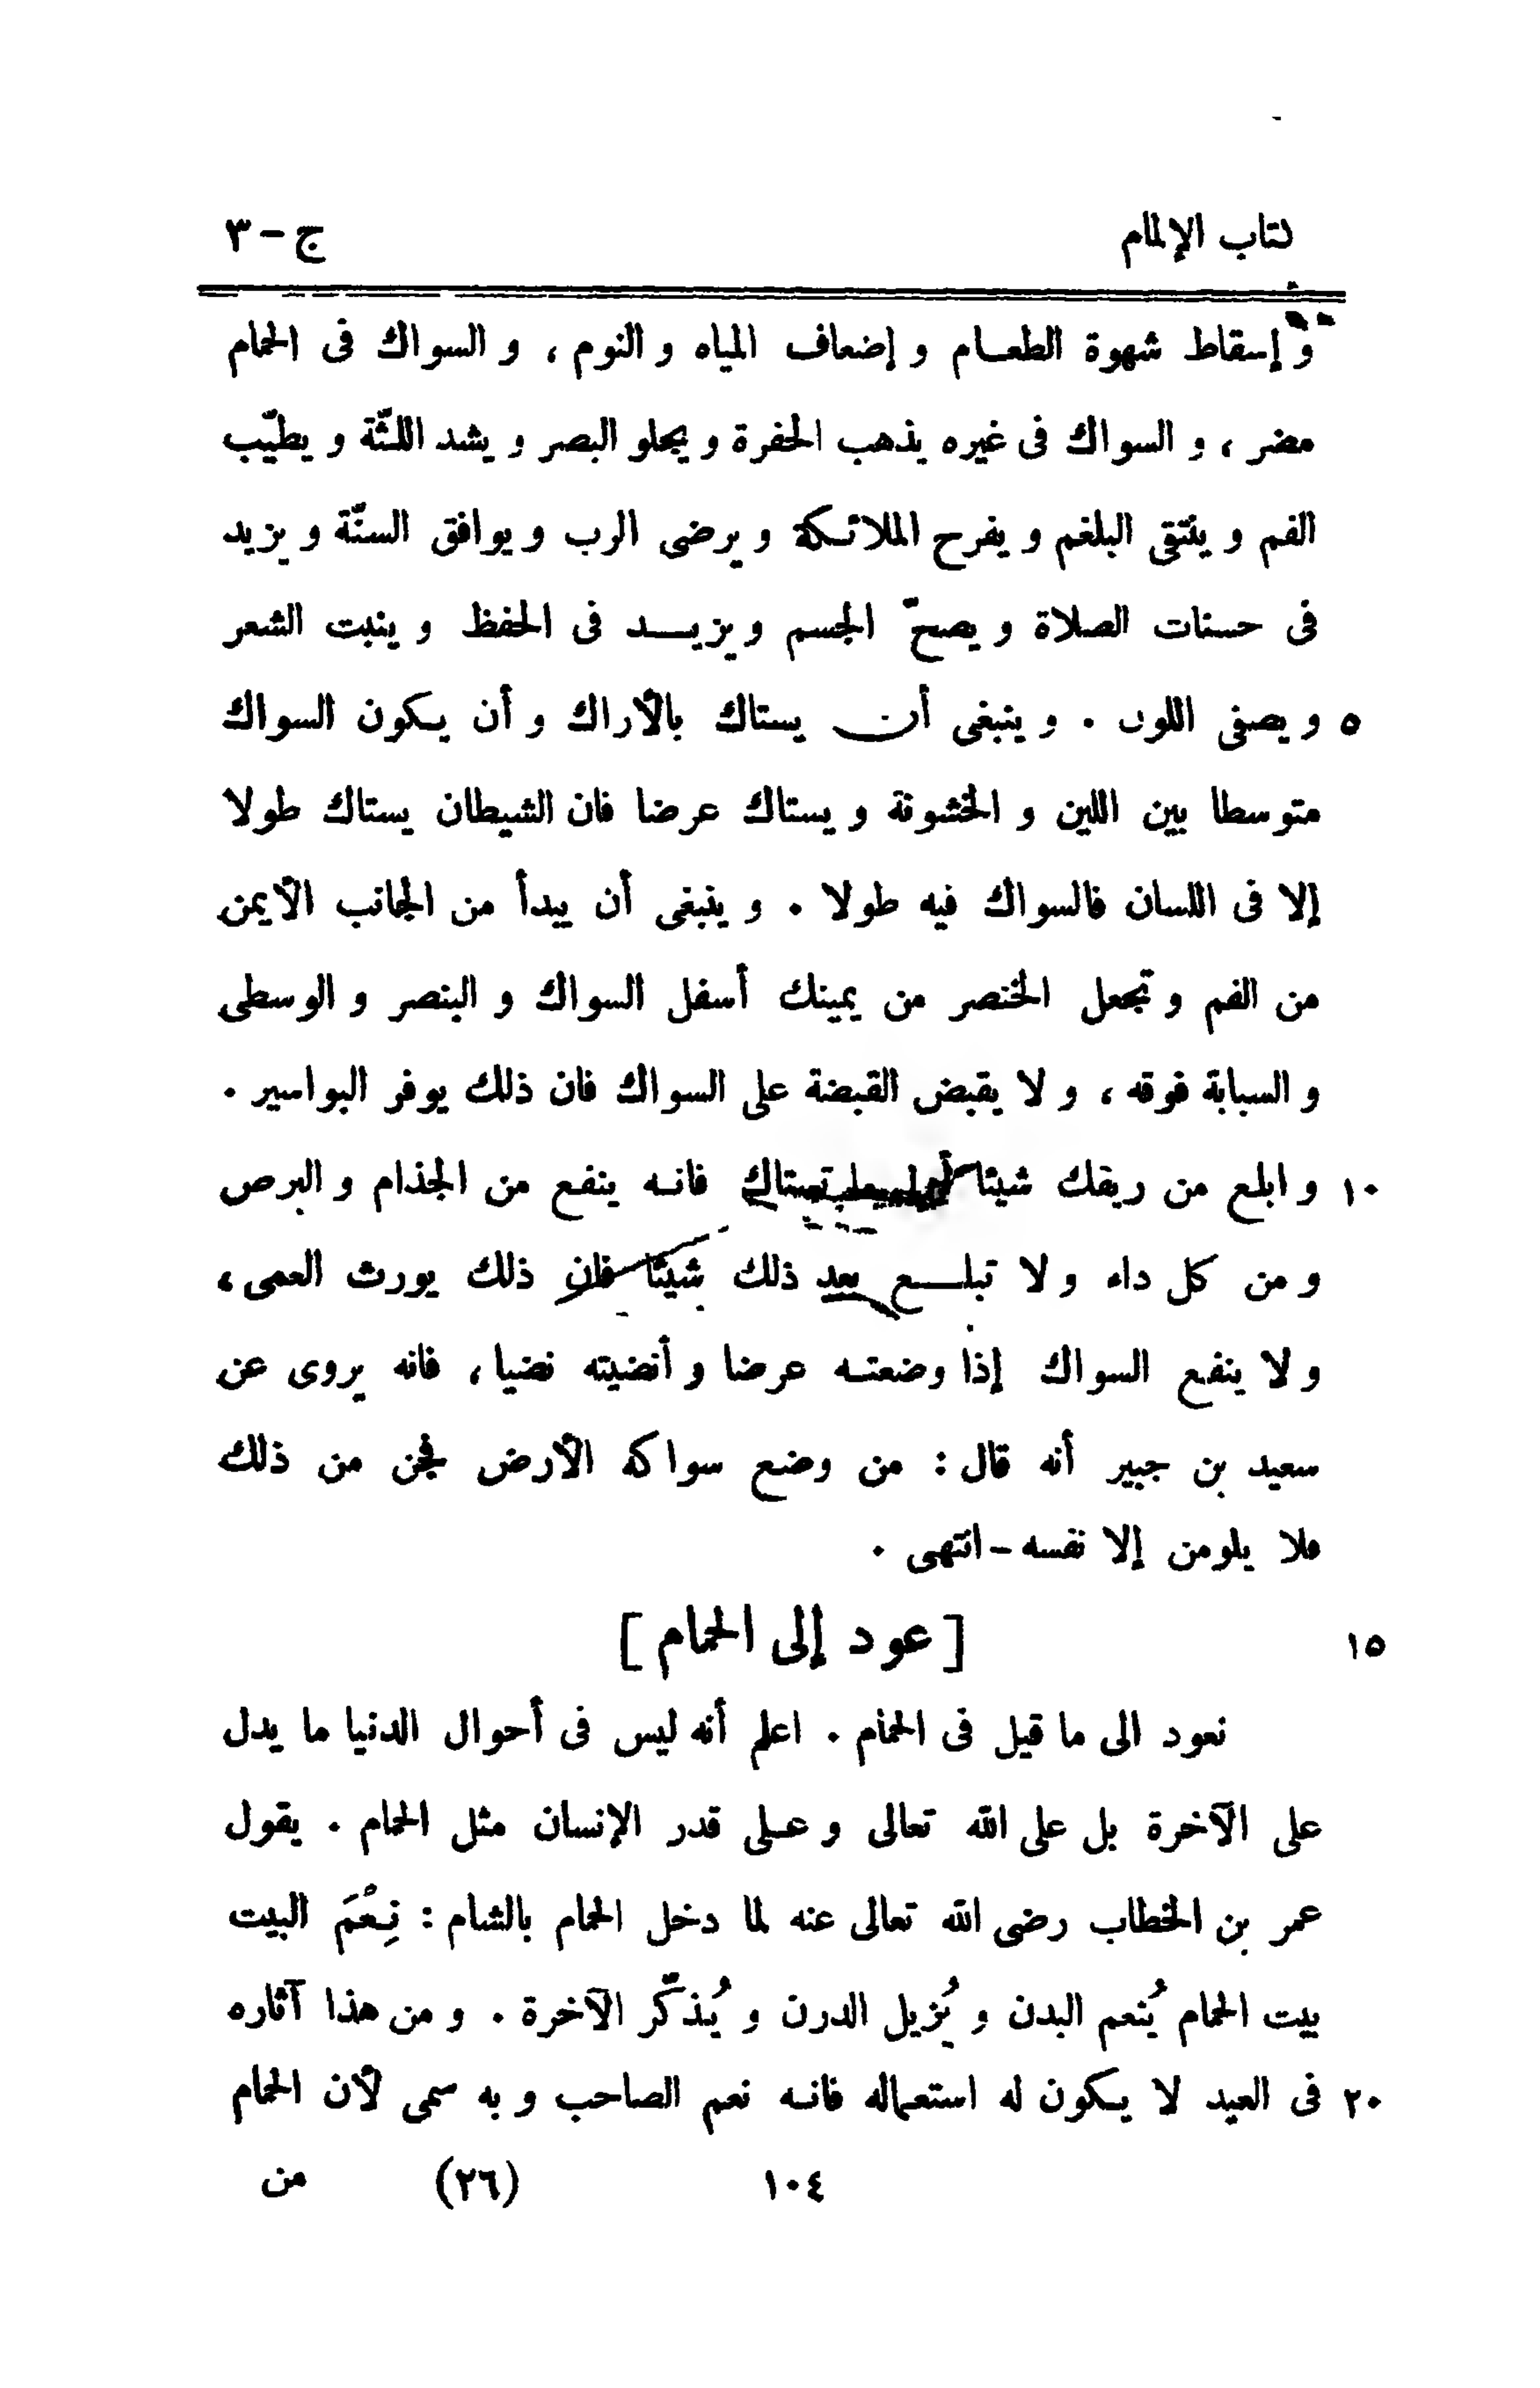 كتاب الإلمام ج-٣
و إسقاط شهوة الطعام و إضعاف المياه و النوم ، و السواك فى الحمام
مضر ، و السواك فى غيره يذهب الحفرة و يجلو البصر و يشد اللثّة و يطيّب
الفم و ينتقى البلغم و يفرح الملائكة و يرضى الرب و يوافق السنّة و يزيد
فى حسنات الصلاة و يصحّ الجسم و يزيد فى الحفظ و ينبت الشعر
٥ و يصفى اللون . و ينبغى أن يستاك بالأراك و أن يكون السواك
متوسطا بين اللين و الخشونة و يستاك عرضا فان الشيطان يستاك طولا
إلا فى اللسان فالسواك فيه طولا . و ينبغى أن يبدأ من الجانب الأيمن
من الفم و تجعل الخنصر من يمينك أسفل السواك و البنصر و الوسطى
و السبابة فوقه ، و لا يقبض القبضة على السواك فان ذلك يوفر البواسير .
١٠ و ابلع من ريقك شيئا تستاك فانه ينفع من الجذام و البرص
و من كل داء و لا تبلع بعد ذلك شيئا فان ذلك يورث العمى ،
و لا ينفع السواك إذا وضعته عرضا و أنضيته نضيا ، فانه يروى عن
سعيد بن جبير أنه قال : من وضع سواكه الأرض فجن من ذلك
فلا يلومن إلا نفسه - انتهى .
١٥ [ عود إلى الحمام ]
نعود الى ما قيل فى الحمام . اعلم أنه ليس فى أحوال الدنيا ما يدل
على الآخرة بل على الله تعالى و على قدر الإنسان مثل الحمام . يقول
عمر بن الخطاب رضى الله تعالى عنه لما دخل الحمام بالشام : نِعْمَ البيت
بيت الحمام يُنعم البدن و يُزيل الدرن و يُذكّر الآخرة . و من هذا آثاره
٢٠ فى العيد لا يكون له استعماله فانه نعم الصاحب و به سمى لأن الحمام
١٠٤ (٢٦) من